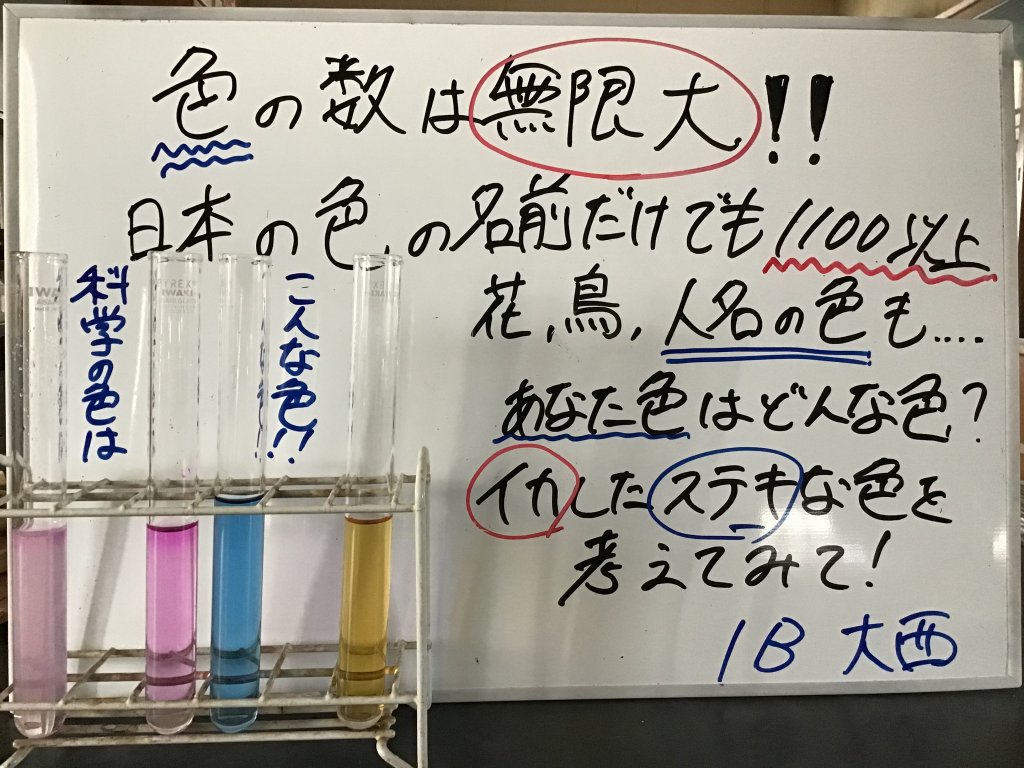 色の数は無限大!!
日本の色の名前だけでも1100以上
花,鳥,人名の色も....
あなた色はどんな色?
イカしたステキな色を
考えてみて!
1B 大西
科学の色は
こんな色!!